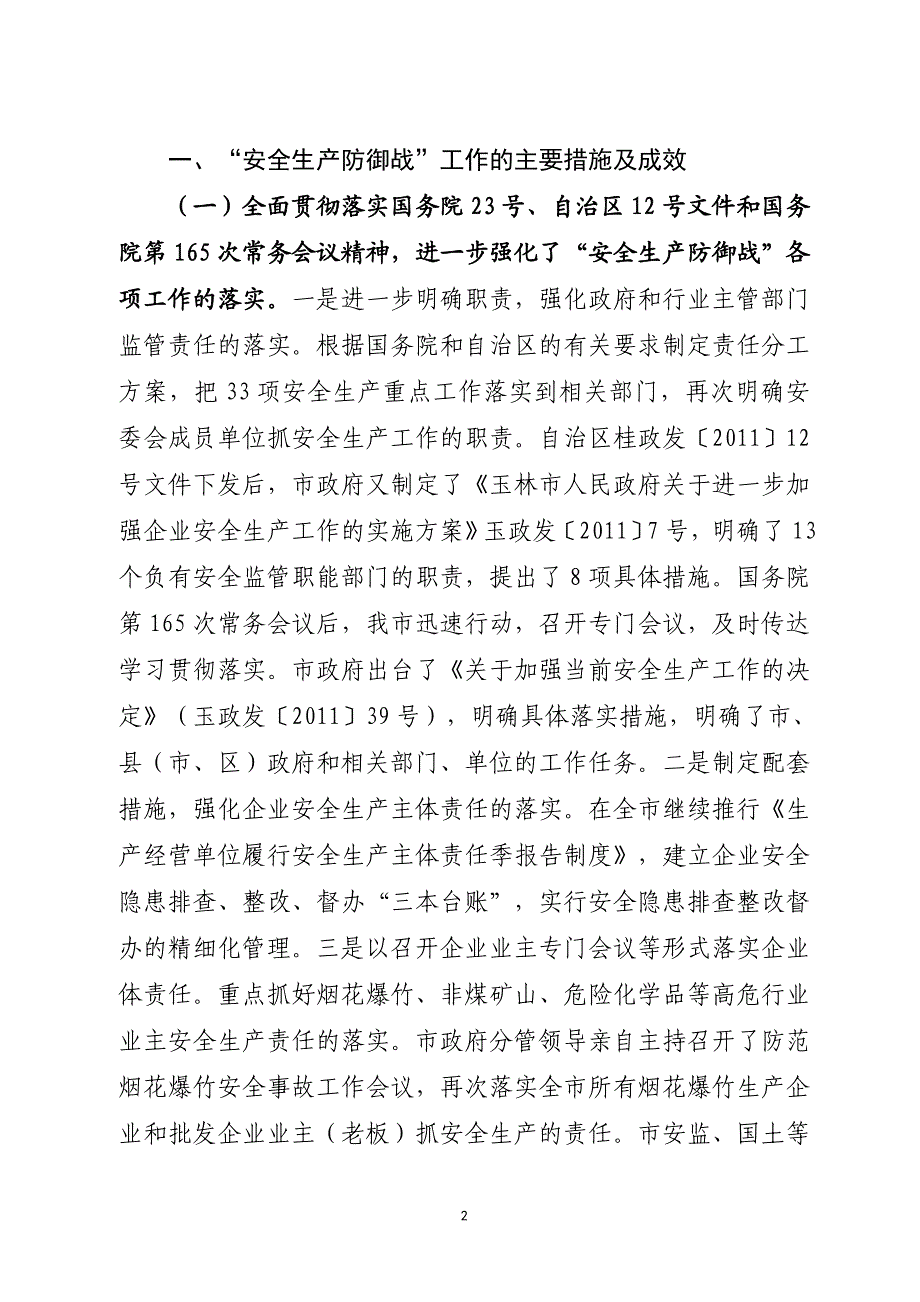 一、“安全生产防御战”工作的主要措施及成效
（一）全面贯彻落实国务院 23 号、自治区 12 号文件和国务
院第 165 次常务会议精神，进一步强化了“安全生产防御战”各
项工作的落实。一是进一步明确职责，强化政府和行业主管部门
监管责任的落实。根据国务院和自治区的有关要求制定责任分工
方案，把 33 项安全生产重点工作落实到相关部门，再次明确安
委会成员单位抓安全生产工作的职责。自治区桂政发〔2011〕12
号文件下发后，市政府又制定了《玉林市人民政府关于进一步加
强企业安全生产工作的实施方案》玉政发〔2011〕7 号，明确了 13
个负有安全监管职能部门的职责，提出了 8 项具体措施。国务院
第 165 次常务会议后，我市迅速行动，召开专门会议，及时传达
学习贯彻落实。市政府出台了《关于加强当前安全生产工作的决
定》（玉政发〔2011〕39 号），明确具体落实措施，明确了市、
县（市、区）政府和相关部门、单位的工作任务。二是制定配套
措施，强化企业安全生产主体责任的落实。在全市继续推行《生
产经营单位履行安全生产主体责任季报告制度》，建立企业安全
隐患排查、整改、督办“三本台账”，实行安全隐患排查整改督
办的精细化管理。三是以召开企业业主专门会议等形式落实企业
体责任。重点抓好烟花爆竹、非煤矿山、危险化学品等高危行业
业主安全生产责任的落实。市政府分管领导亲自主持召开了防范
烟花爆竹安全事故工作会议，再次落实全市所有烟花爆竹生产企
业和批发企业业主（老板）抓安全生产的责任。市安监、国土等
2